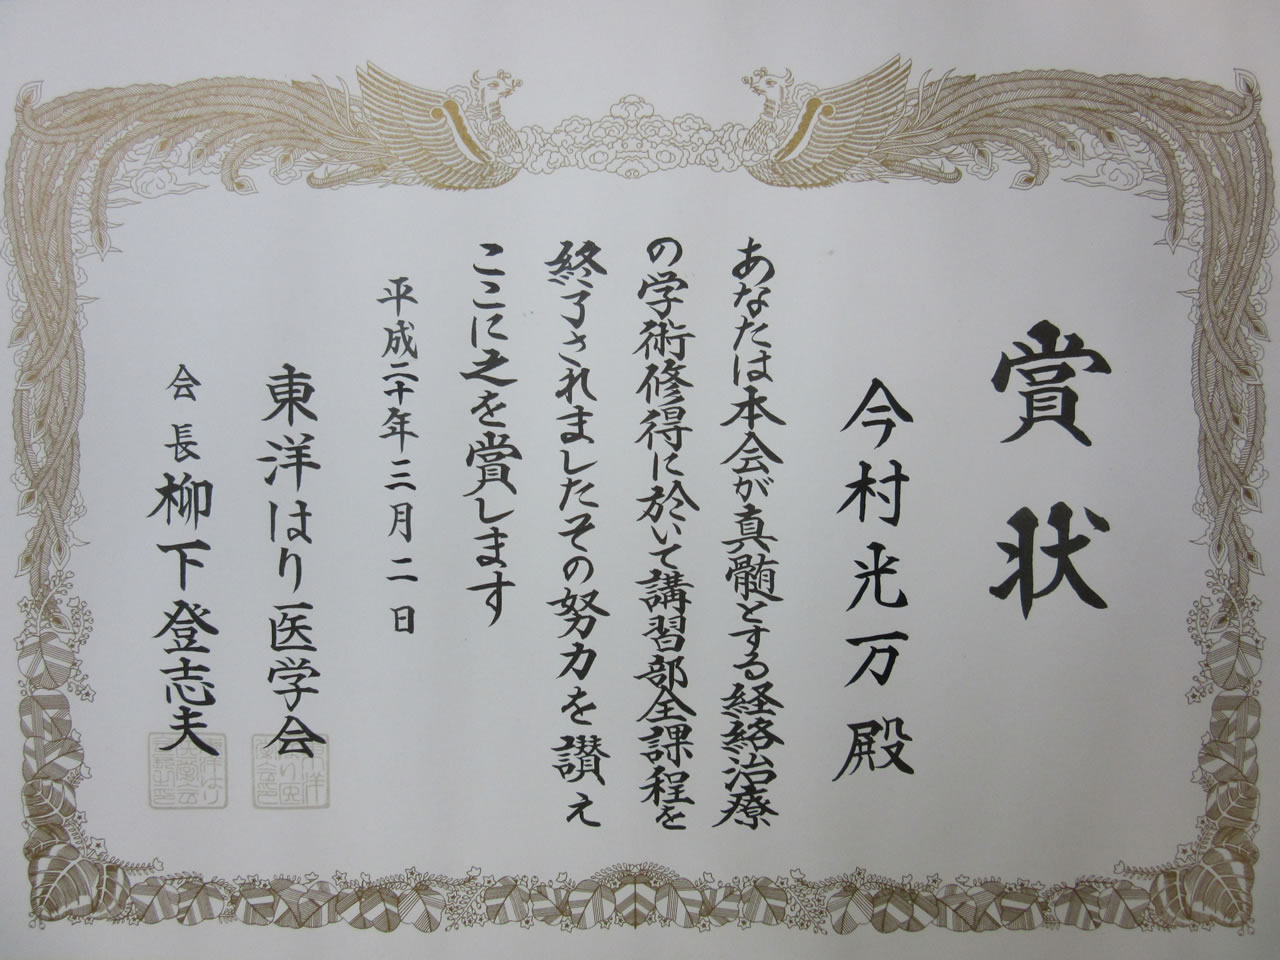 賞状
今村光万殿
あなたは本会が真髄とする経絡治療
の学術修得に於いて講習部全課程を
終了されましたその努力を讃え
ここに之を賞します
平成二十年三月二日
東洋はり医学会
会長柳下登志夫